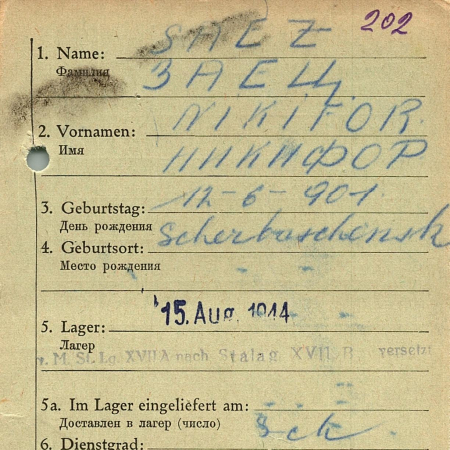 202
1. Name: SAEZ
Фамилия ЗАЕЦ
2. Vornamen: NIKIFOR.
Имя НИКИФОР
3. Geburtstag: 12-6-901.
День рождения
4. Geburtsort:
Место рождения
15. Aug. 1944
5. Lager:
Лагер
v. M. St. Lg. XVII A nach Stalag XVII B versetzt
5a. Im Lager eingeliefert am:
Доставлен в лагер (число)
6. Dienstgrad: